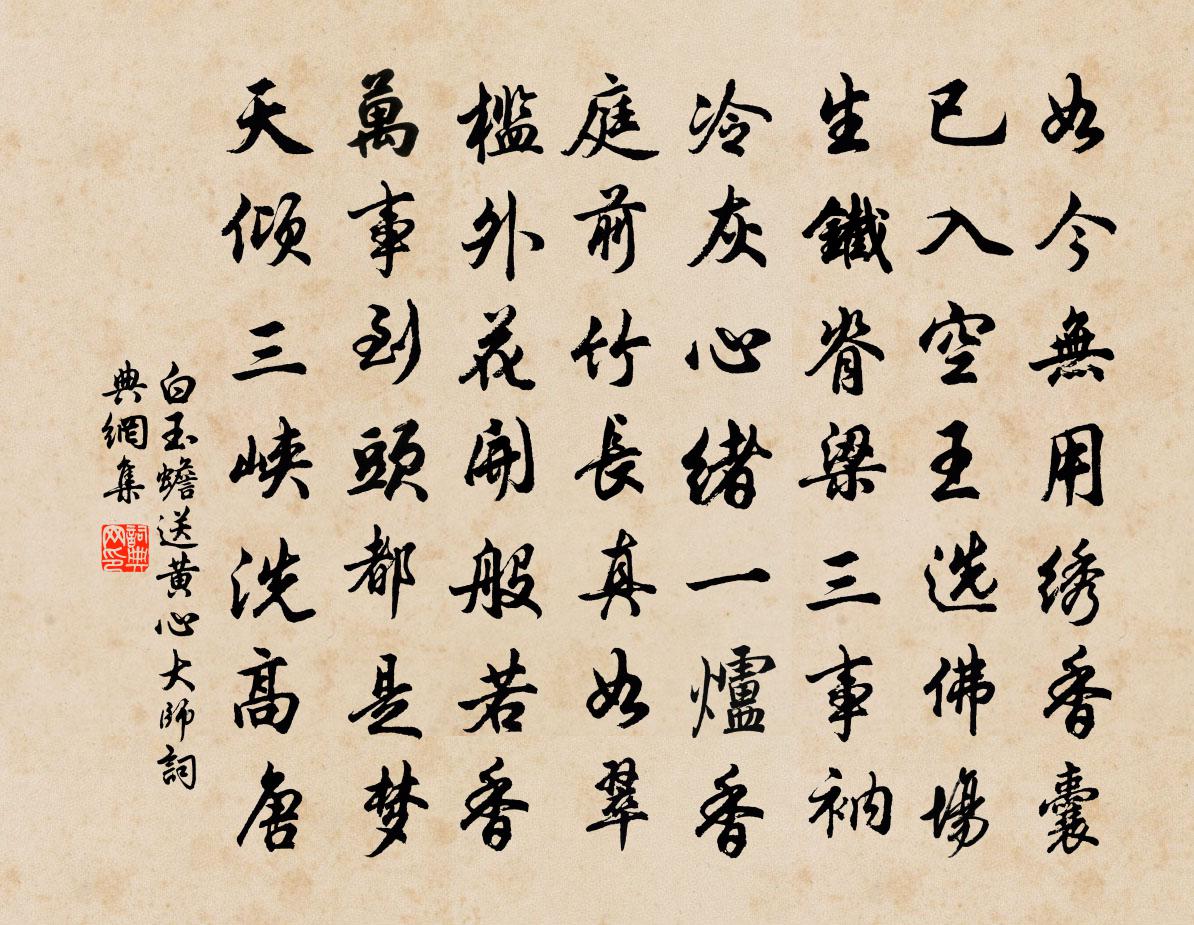 如今無用绣香囊
已入空王选佛場
生鐵脊梁三事衲
冷灰心緒一爐香
庭前竹長真如翠
檻外花開般若香
萬事到頭都是梦
天倾三峡洗高唐
白玉蟾送黄心大师詞
典網集
詞典
网印